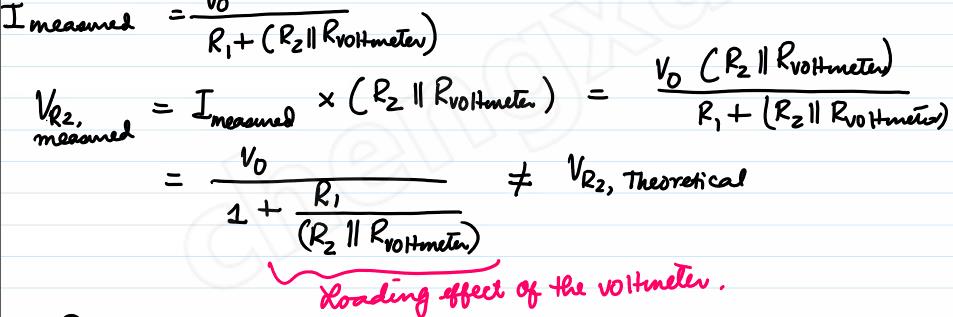 I measured = V0 / (R1 + (R2 || Rvoltmeter))
VR2, measured = I measured × (R2 || Rvoltmeter) = V0 (R2 || Rvoltmeter) / (R1 + (R2 || Rvoltmeter))
= V0 / (1 + R1 / (R2 || Rvoltmeter)) ≠ VR2, Theoretical
Loading effect of the voltmeter.